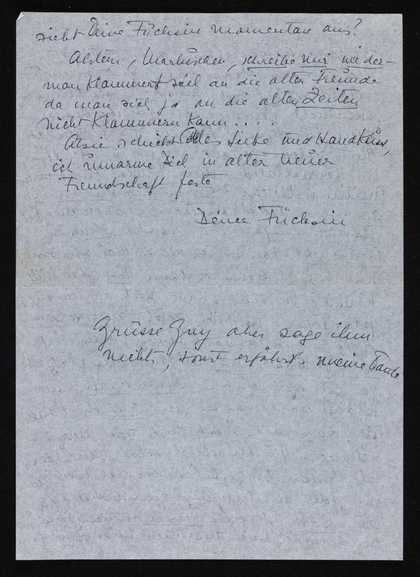 sieht Deine Füchsin momentan aus?
Alsten, Marlinchen, schreibe mir wieder-
man klammert sich an die alten Freunde
da man sich ja an die alten Zeiten
nicht klammern kann . . . .
schickt alles Liebe und Handkuss,
ich umarme Dich in alter treuer
Freundschaft feste
Deine Füchsin
Grüsse aber sage ihm
nichts, sonst erfährt's meine Tante